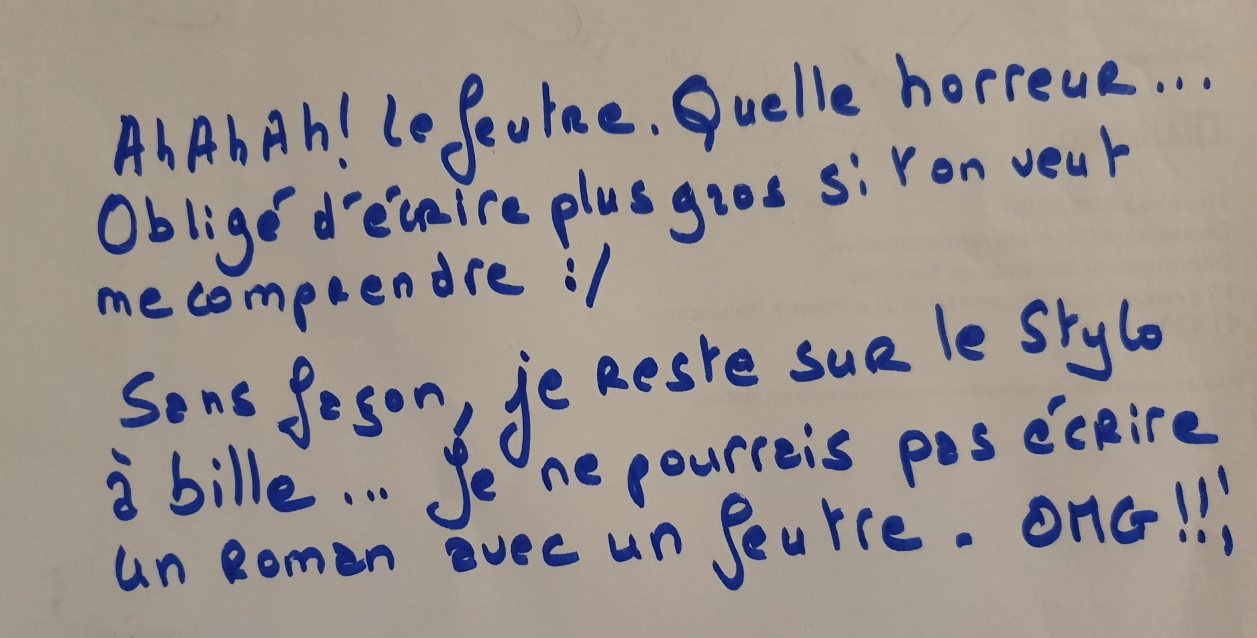 AhAhAh! Le feutre. Quelle horreur...
Obligé d'écrire plus gros si l'on veut
me comprendre :/
Sans façon, je reste sur le stylo
à bille... Je ne pourrais pas écrire
un roman avec un feutre. OMG!!!